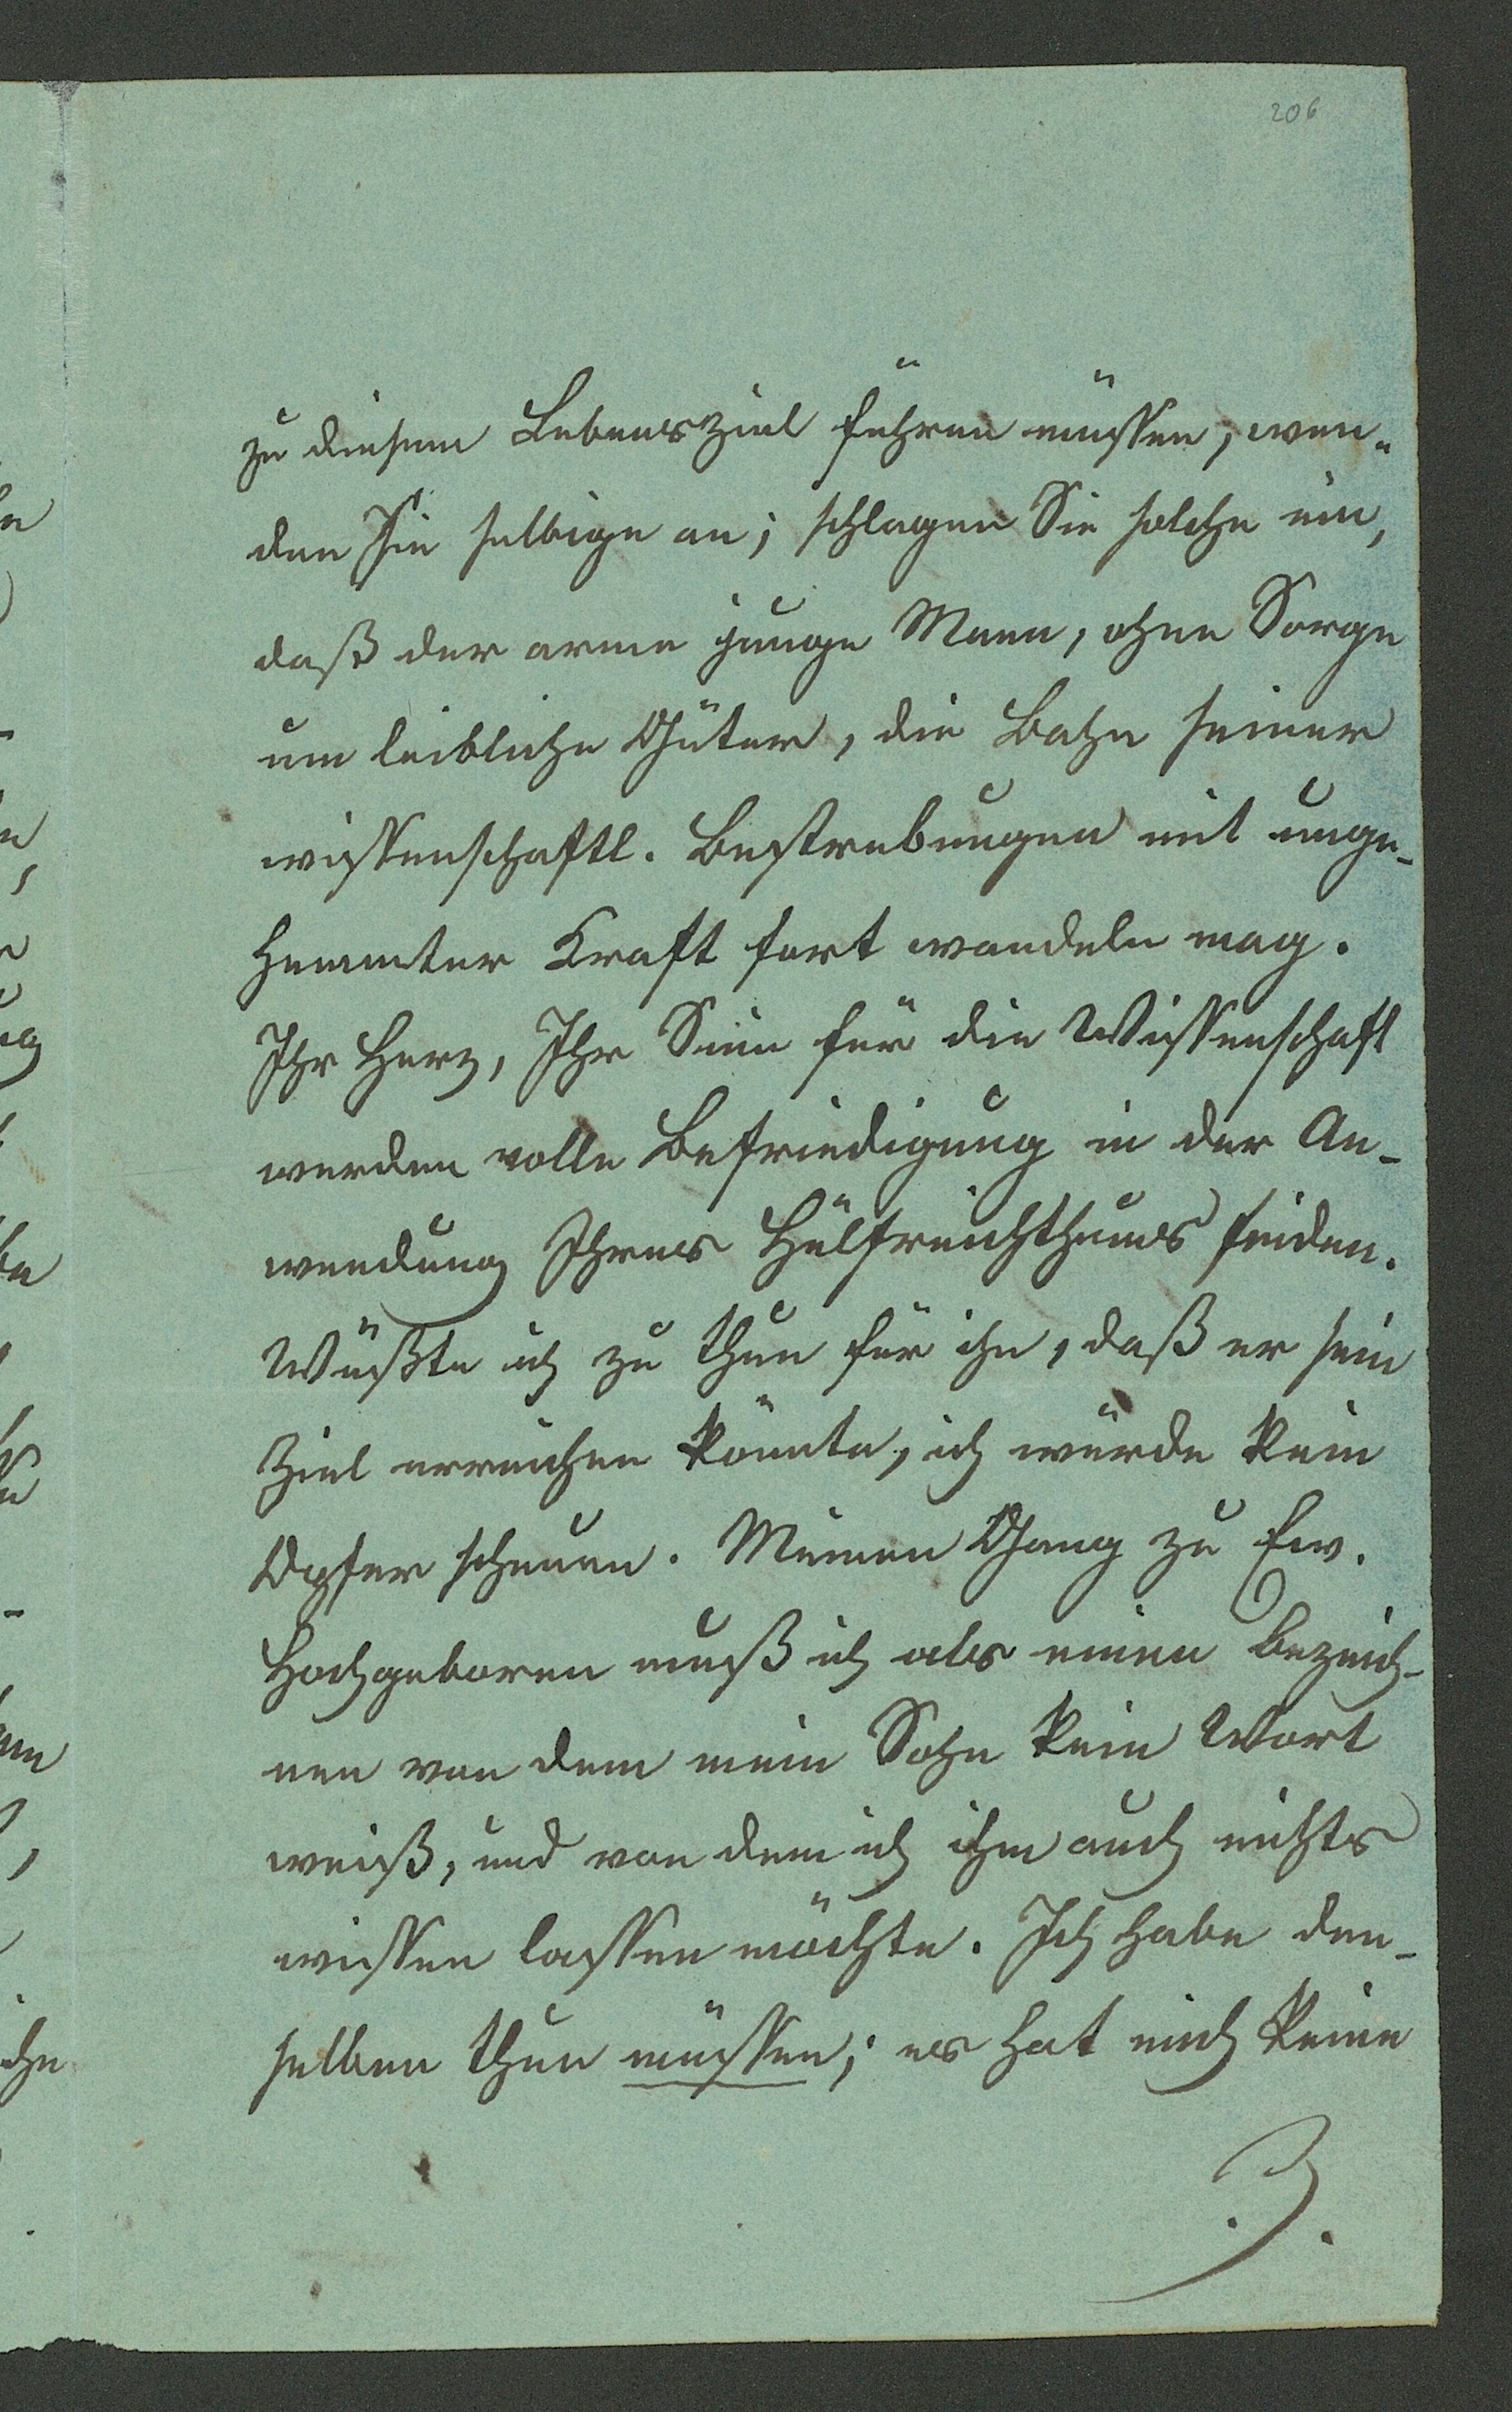 206
zu diesem Lebensziel führen müssen, wen-
den Sie selbige an; schlagen Sie solche ein,
daß der arme junge Mann, ohne Sorge
um leibliche Güter, die Bahn seiner
wissenschaftl. Bestrebungen mit unge-
hemmter Kraft fort wandeln mag.
Ihr Herz, Ihr Sinn für die Wissenschaft
werden volle Befriedigung in der An-
wendung Ihres Hülfreichthums finden.
Wüßte ich zu thun für ihn, daß er sein
Ziel erreichen könnte, ich würde kein
Opfer scheuen. Meinen Gang zu Ew.
Hochgeboren muß ich als einen bezeich-
nen von dem mein Sohn kein Wort
weiß, und von dem ich ihm auch nichts
wissen lassen möchte. Ich habe den-
selben thun müssen; es hat mich keine